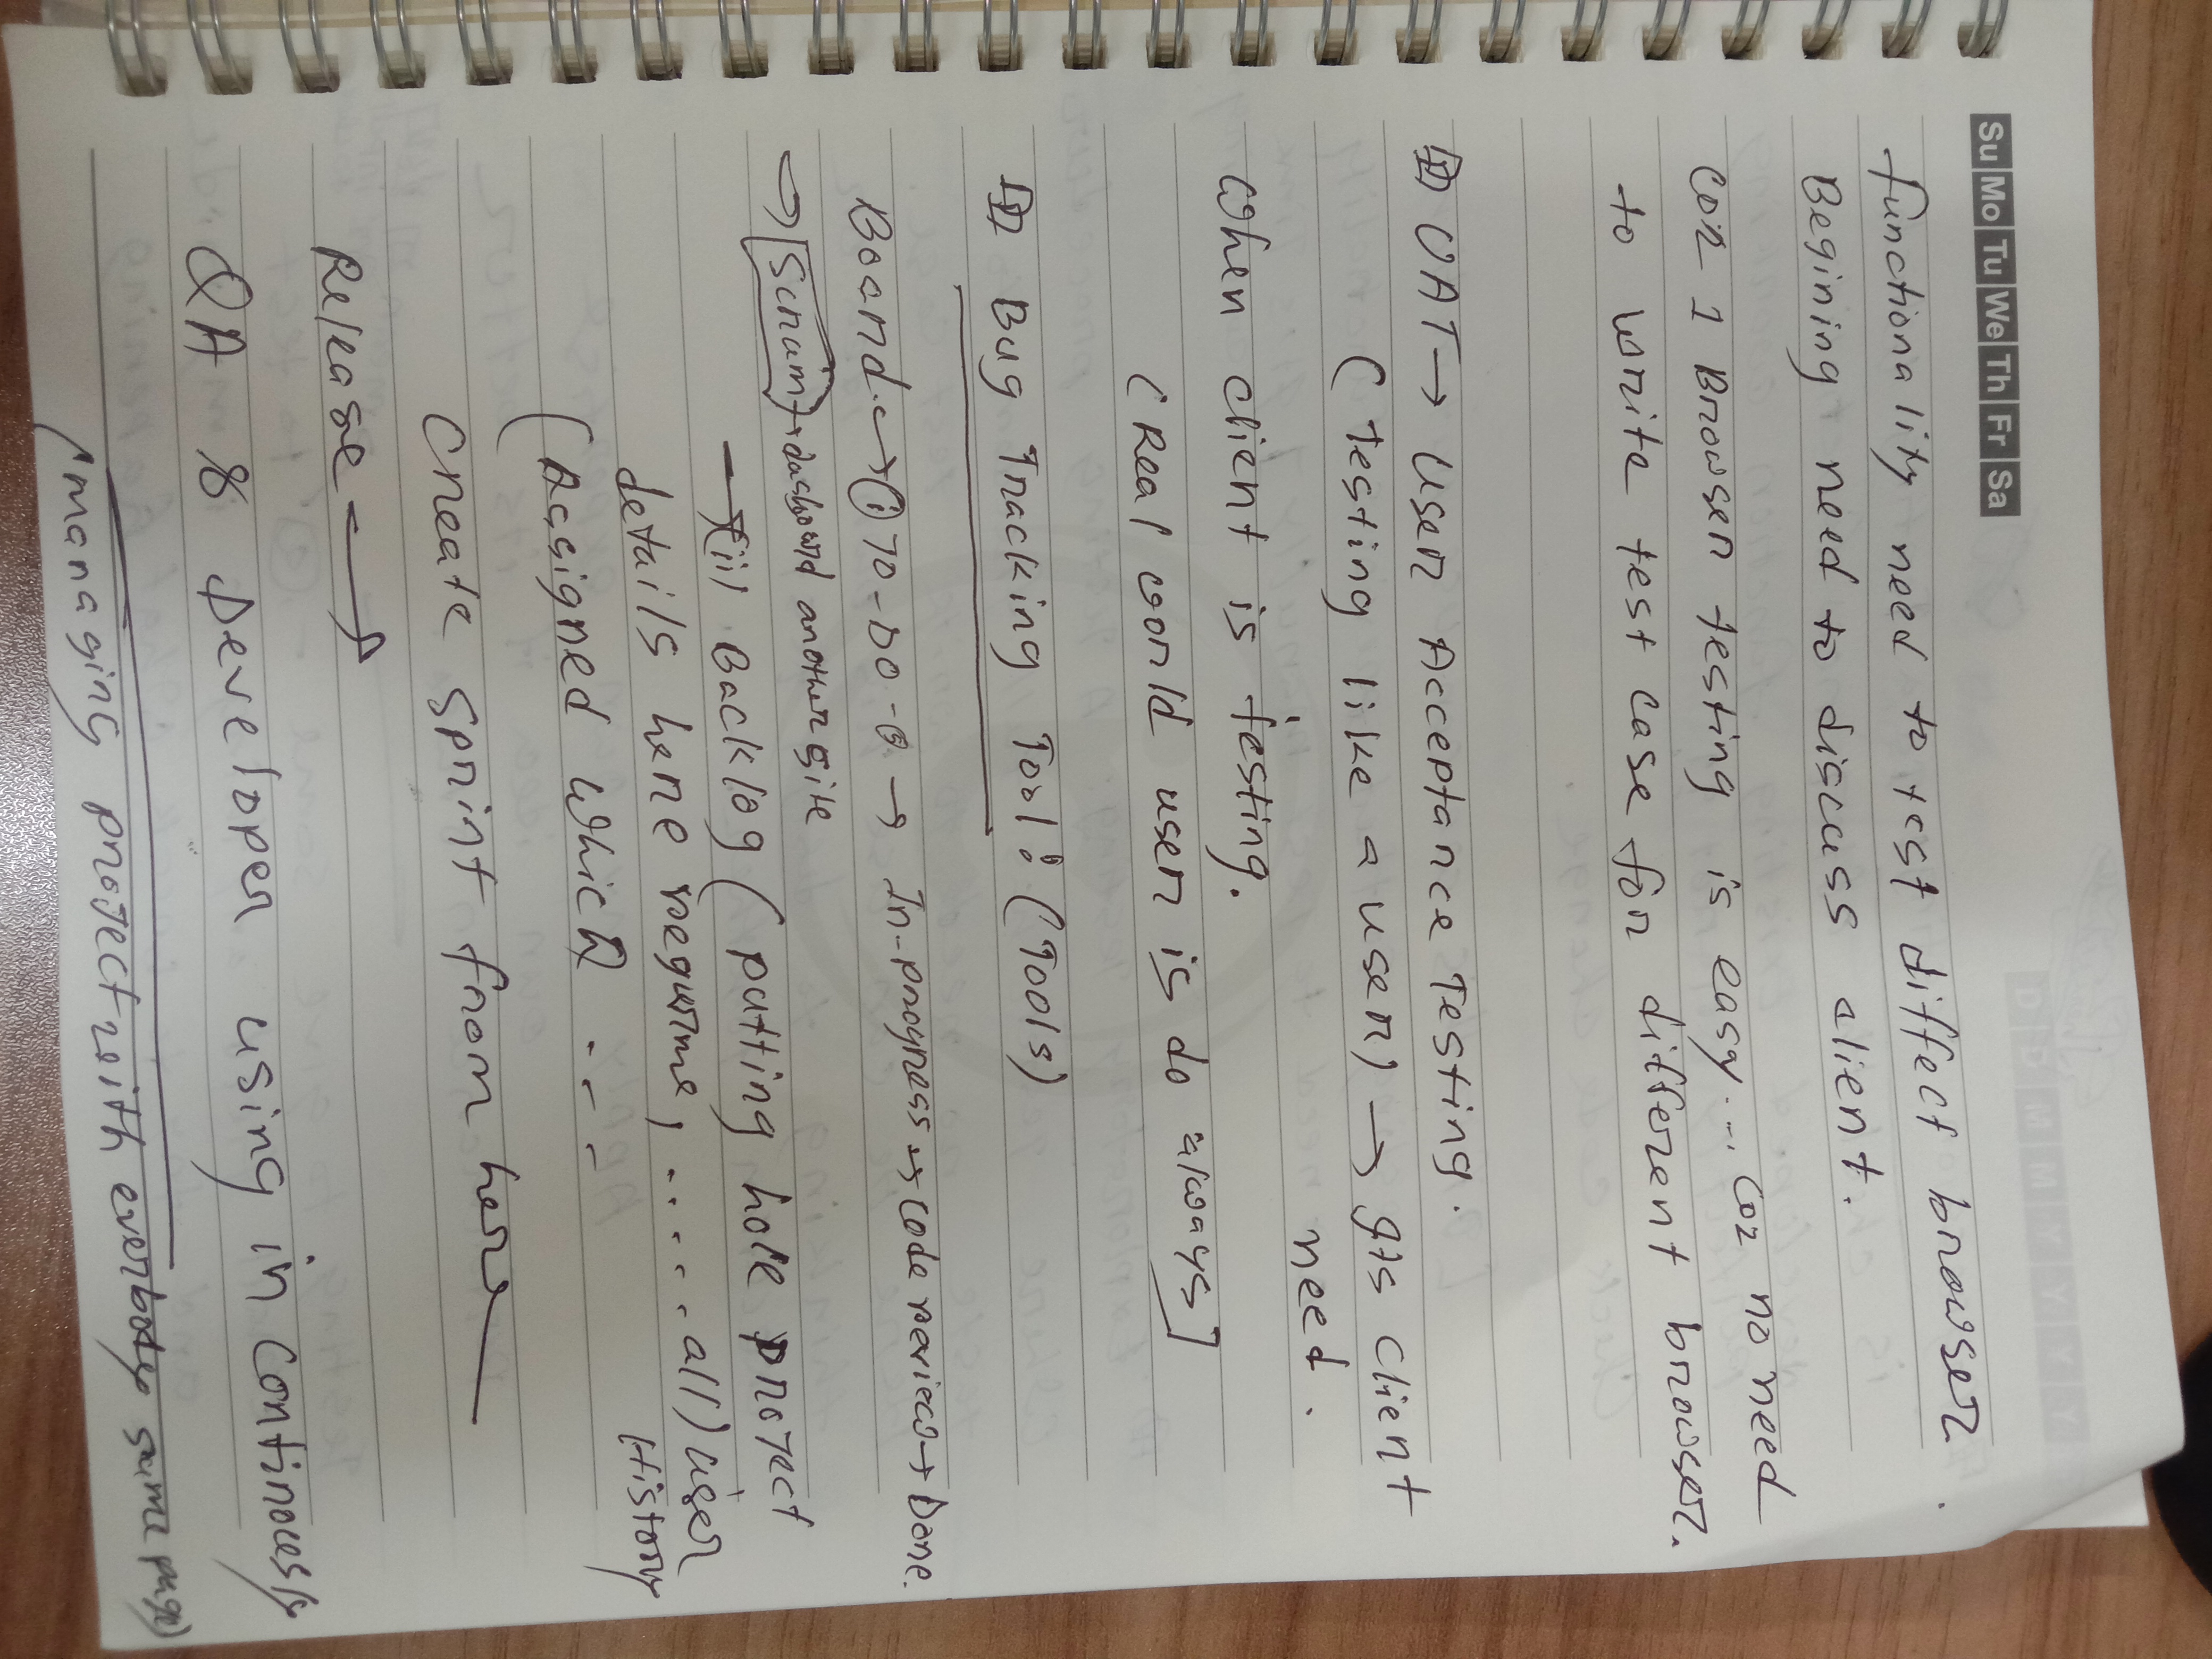 Su Mo Tu We Th Fr Sa
D D M M Y Y Y Y
functionality need to test diffect browser.
Begining need to discuss client.
coz 1 Browser testing is easy... coz no need
to write test case for different browser.
UAT → User Acceptance Testing.
(Testing like a user) → Its client
need.
When client is testing.
(Real world user is do always]
Bug Tracking Tool: (Tools)
Board → (i) TO-DO → In-progress → code review → Done.
→ [Scrum] → dashboard another site
→ (ii) Backlog (putting hole project
details here requrme, ..... all) user
History
(Assigned which ...
create sprint from here
Release →
QA & Developer using in continouesly
(managing project with everbody same page)